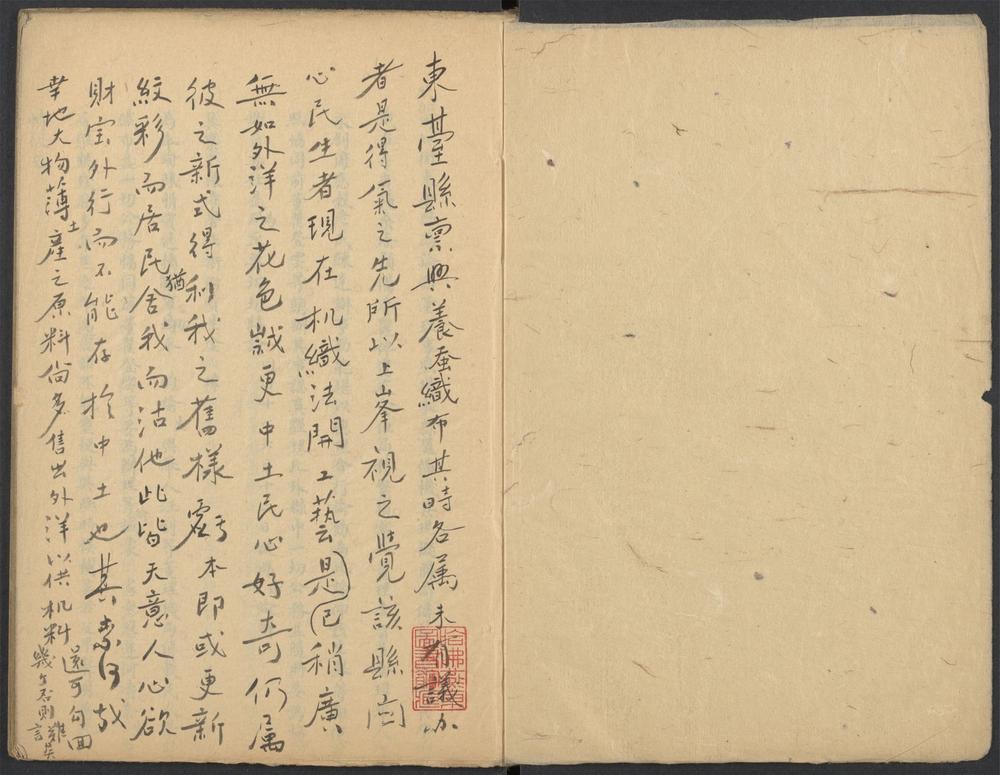 東臺縣禀興養蚕織布其時各属未有議办
者是得氣之先所以上峯視之覺該縣
心民生者現在机織法開工藝是已稍廣
無如外洋之花色誠更中土民心好奇仍属
彼之新式得利我之舊樣虧本即或更新
紋彩而居民猶舍我而沽他此皆天意人心欲
財宝外行而不能存於中土也其奈何哉
幸地大物薄土產之原料尚多售出外洋以供机料還可勾回
幾个否則難言矣
哈佛燕